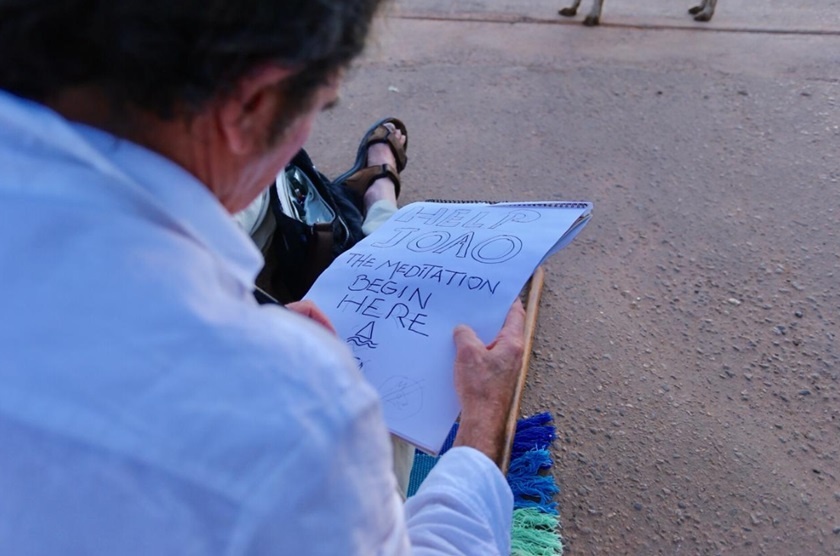 HELP
JOAO
THE MEDITATION
BEGIN
HERE